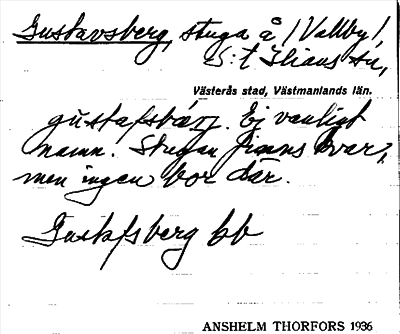 Gustavsberg, stuga å /Vallby/
S:t Ilians sn,
Västerås stad, Västmanlands län.
gustafsbärj. Ej vanligt
namn. Stugan finns kvar,
men ingen bor där.
Gustafsberg bb
ANSHELM THORFORS 1936